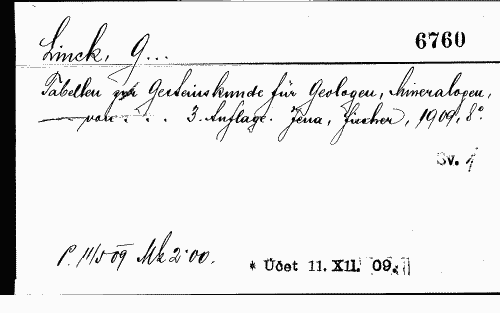 Linck, G...
6760
Tabellen zur Gesteinskunde für Geologen, Mineralogen,
— von . . . 3. Auflage. Jena, Fischer, 1909, 8°.
Sv. 1
P. 11/5 09 Mk 2·00.
* Účet 11. XII. 09.